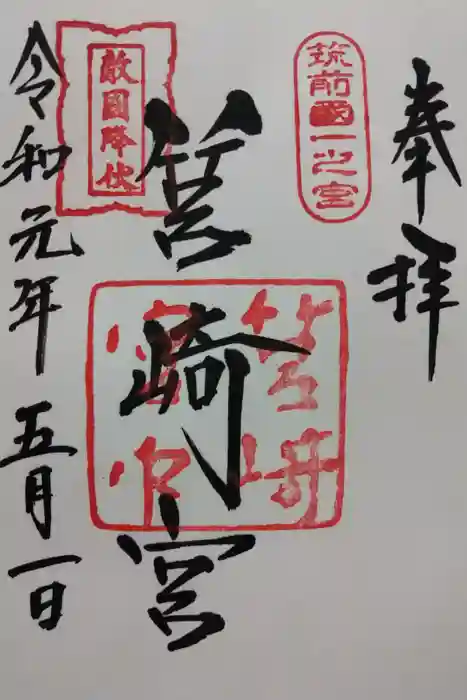 奉拝
筑前國一之宮
筥崎宮
敵國降伏
令和元年 五月一日